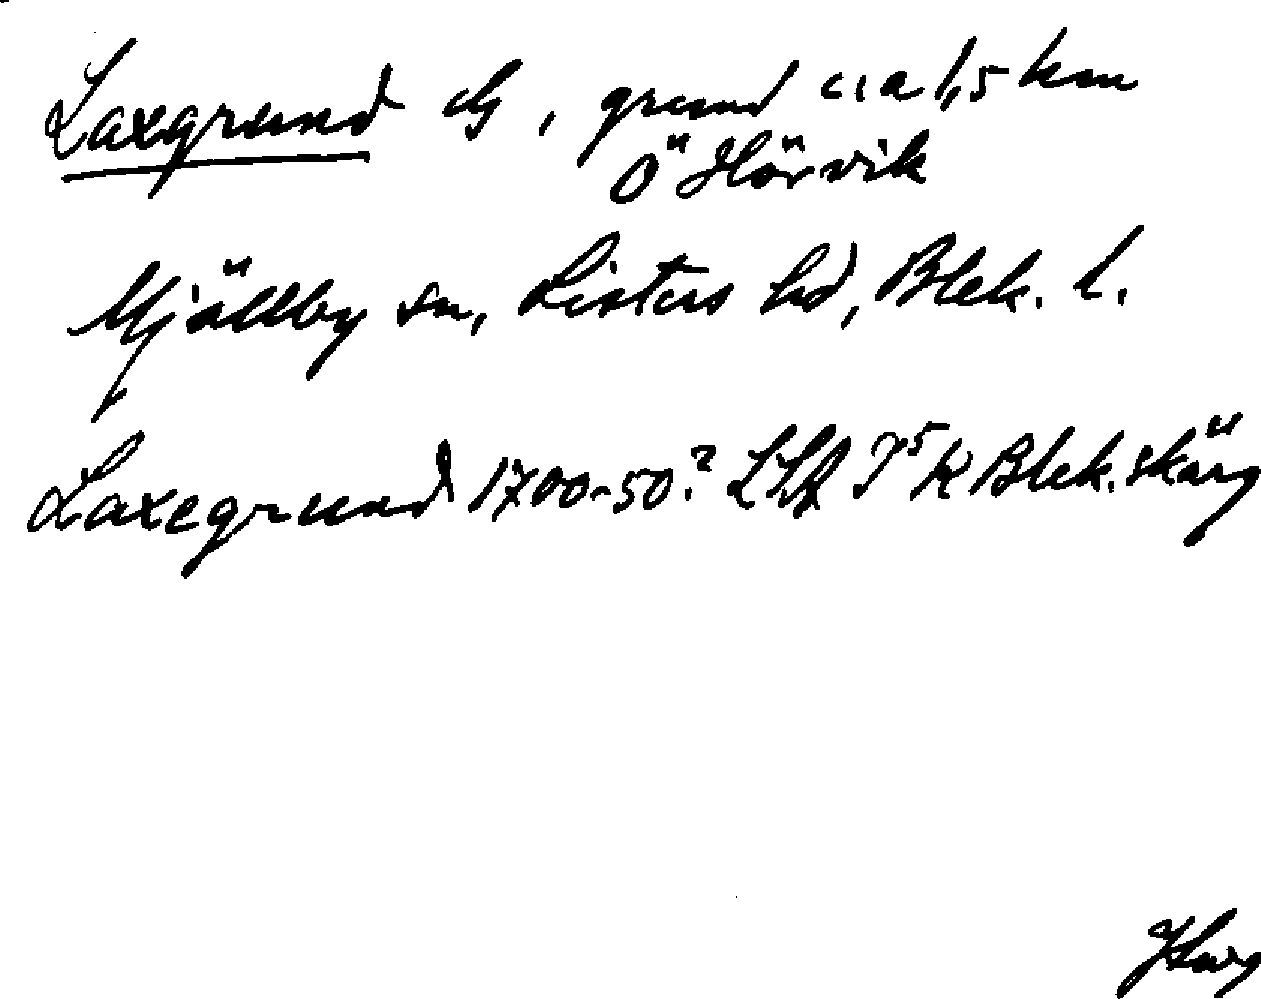 Laxgrund G, grund c:a 1,5 km
Ö Hörvik
Mjällby sn, Listers hd, Blek. l.
Laxegrund 1700-50? K Blek. skärg